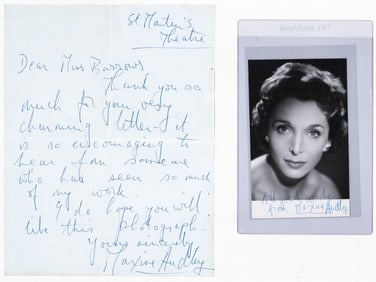 St Martin's
Theatre
Dear Miss Burrows
Thank you so
much for your very
charming letter - it
is so encouraging to
hear from someone
who has seen so much
of my work.
I do hope you will
like this photograph.
Yours sincerely,
Maxine Audley
from Maxine Audley